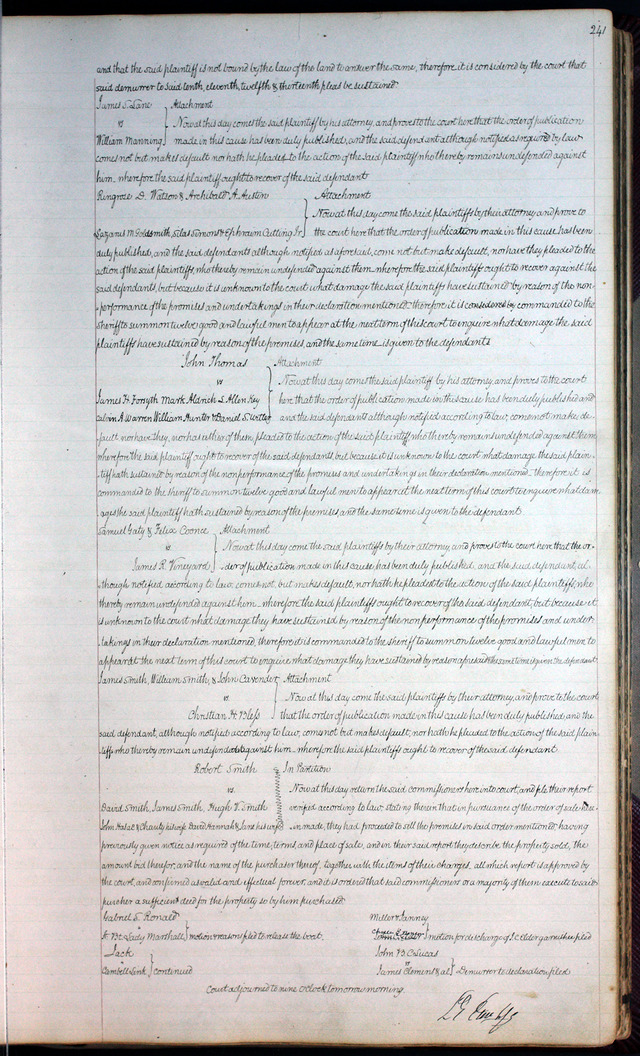 241
and that the said plaintiff is not bound by the law of the land to answer the same, therefore it is considered by the court that
said demurrer to said tenth, eleventh, twelfth & thirteenth pleas be sustained.
James S. Lane Attachment
vs Now at this day comes the said plaintiff by his attorney, and proves to the court here that the order of publication
William Manning made in this cause has been duly published, and the said defendant although notified as required by law
comes not but makes default nor hath he pleaded to the action of the said plaintiff who thereby remains undefended against
him, wherefore the said plaintiff ought to recover of the said defendant
Ringrose D. Watson & Archibald A. Austin Attachment
Now at this day come the said plaintiffs by their attorney and prove to
M Goldsmith Silas & Ephraim Cutting Jr. the court here that the order of publication made in this cause has been
duly published, and the said defendants although notified as aforesaid, come not but make default, nor have they pleaded to the
action of the said plaintiffs, who thereby remain undefended against them. wherefore the said plaintiffs ought to recover against the
said defendants, but because it is unknown to the court what damage the said plaintiffs have sustained by reason of the non-
performance of the promises and undertakings in their declaration mentioned, therefore it is considered by commanded to the
sheriff to summon twelve good and lawful men to appear at the next term of this court to enquire what damage the said
plaintiffs have sustained by reason of the premises, and the same time is given to the defendants
John Thomas Attachment
vs Now at this day comes the said plaintiff by his attorney, and proves to the court
James H Forsyth Mark Aldrich L. Allen Key here that the order of publication made in this cause has been duly published and
Calvin A Warren William Hunter & Daniel S. Witter and the said defendants although notified according to law, come not make de-
fault nor have they, nor has either of them, pleaded to the action of the said plaintiff who thereby remains undefended against them
wherefore the said plaintiff ought to recover of the said defendants, but because it is unknown to the court what damage the said plain-
tiff hath sustained by reason of the nonperformance of the promises and undertakings in their declaration mentioned. Therefore it is
commanded to the sheriff to summon twelve good and lawful men to appear at the next term of this court to enquire what dam-
ages the said plaintiff hath sustained by reason of the premises and the same time is given to the defendant
Samuel Gaty & Felix Coonce Attachment
vs Now at this day come the said plaintiffs by their attorney and proves to the court here that the or-
James R. Vineyard der of publication made in this cause has been duly published, and the said defendant, al-
though notified according to law, comes not, but makes default, nor hath he pleaded to the action of the said plaintiffs, who
thereby remain undefended against him. wherefore the said plaintiffs ought to recover of the said defendant, but because it
is unknown to the court what damage they have sustained by reason of the nonperformance of the promises and under-
takings in their declaration mentioned, therefore it is commanded to the sheriff to summon twelve good and lawful men to
appear at the next term of this court to enquire what damage they have sustained by reason aforesaid the same time is given the defendant
James Smith, William Smith, & John Cavender Attachment
vs. Now at this day come the said plaintiffs by their attorney, and prove to the court
Christian H. Bless that the order of publication made in this cause has been duly published, and the
said defendant, although notified according to law, comes not but makes default, nor hath he pleaded to the action of the said plain-
tiff who thereby remain undefended against him. wherefore the said plaintiffs ought to recover of the said defendant
Robert Smith In Partition
vs. Now at this day return the said commissioners here into court, and file their report
Baird Smith, James Smith, Hugh V. Smith verified according to law, stating therein that in pursuance of the order of sale here-
John & Charity his wife David Hannah & Jane his wife in made, they had proceeded to sell the premises in said order mentioned, having
previously given notice as required of the time, terms, and place of sale, and in their said report they describe the property sold, the
amount bid therefor, and the name of the purchaser thereof, together with the items of their charges, all which report is approved by
the court, and confirmed as valid and effectual forever, and it is ordered that said commissioners or a majority of them execute to said
purcher a sufficient deed for the property so by him purchased.
Gabriel S. Ronald
vs
St Bt Lady Marshall motion & reasons filed to release the boat.
Jack
vs
Cambell & Link continued
Miller & Janney
vs
motion for discharge of J. C Elder garnishee filed
John B C Lucas
vs
James Clemens & al Demurrer to declaration filed
Court adjourned to nine o'clock tomorrow morning.